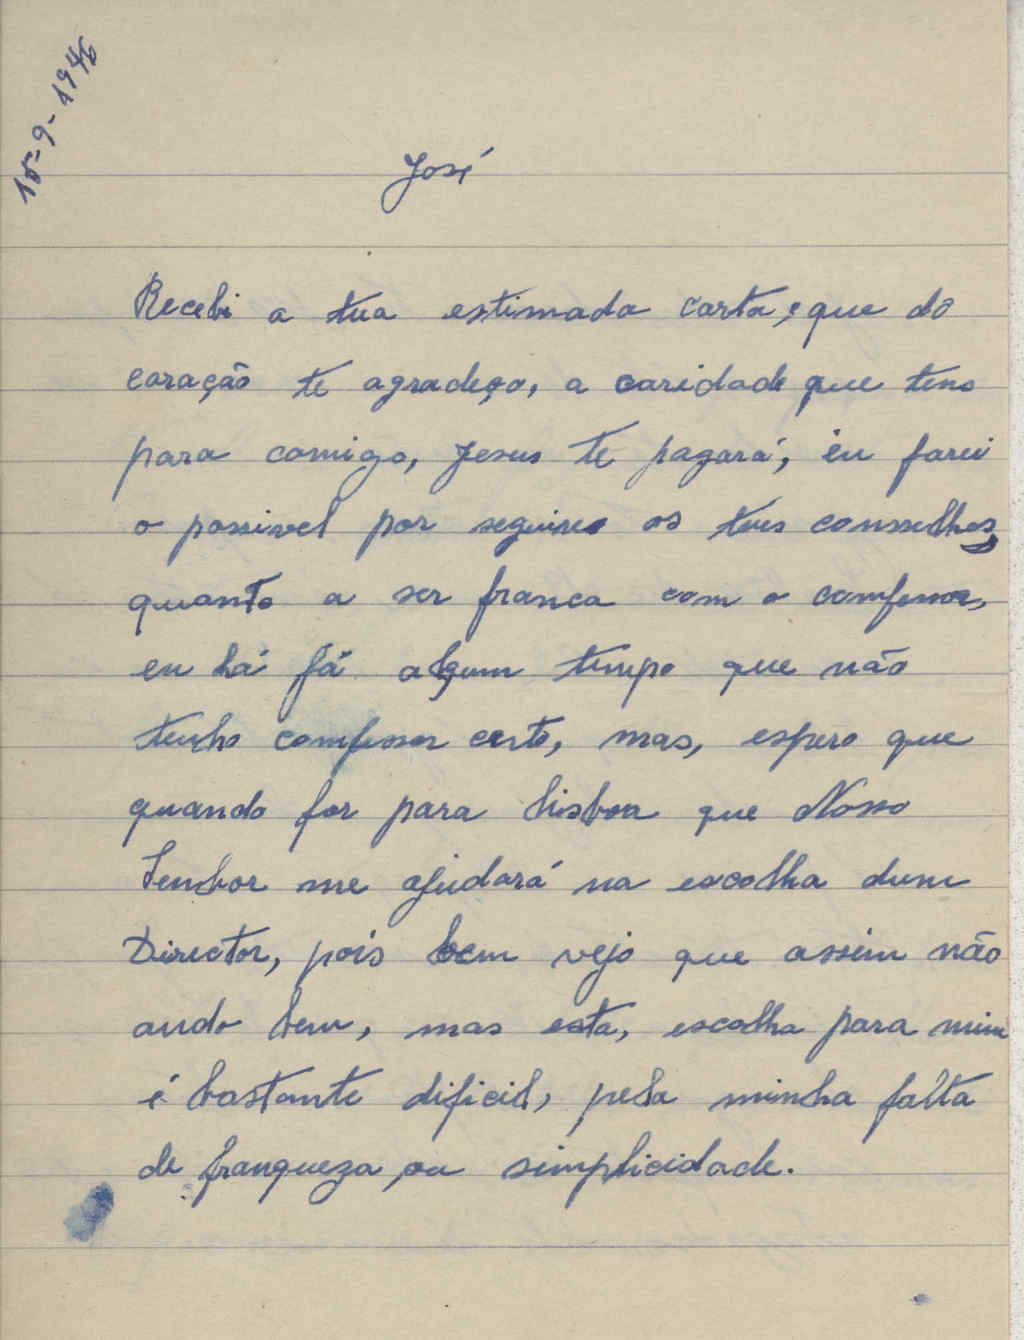 15-9-1946
José
Recebi a tua estimada carta, que do
coração te agradeço, a caridade que tens
para comigo, Jesus te pagará, eu farei
o possivel por seguires os teus consselhos,
quanto a ser franca com o comfessor,
eu há já algum tempo que não
tenho comfessor certo, mas, espero que
quando for para Lisboa que Nosso
Senhor me ajudará na escolha dum
Director, pois bem vejo que assim não
ando bem, mas esta, escolha para mim
é bastante dificil, pela minha falta
de franqueza, ou simplicidade.